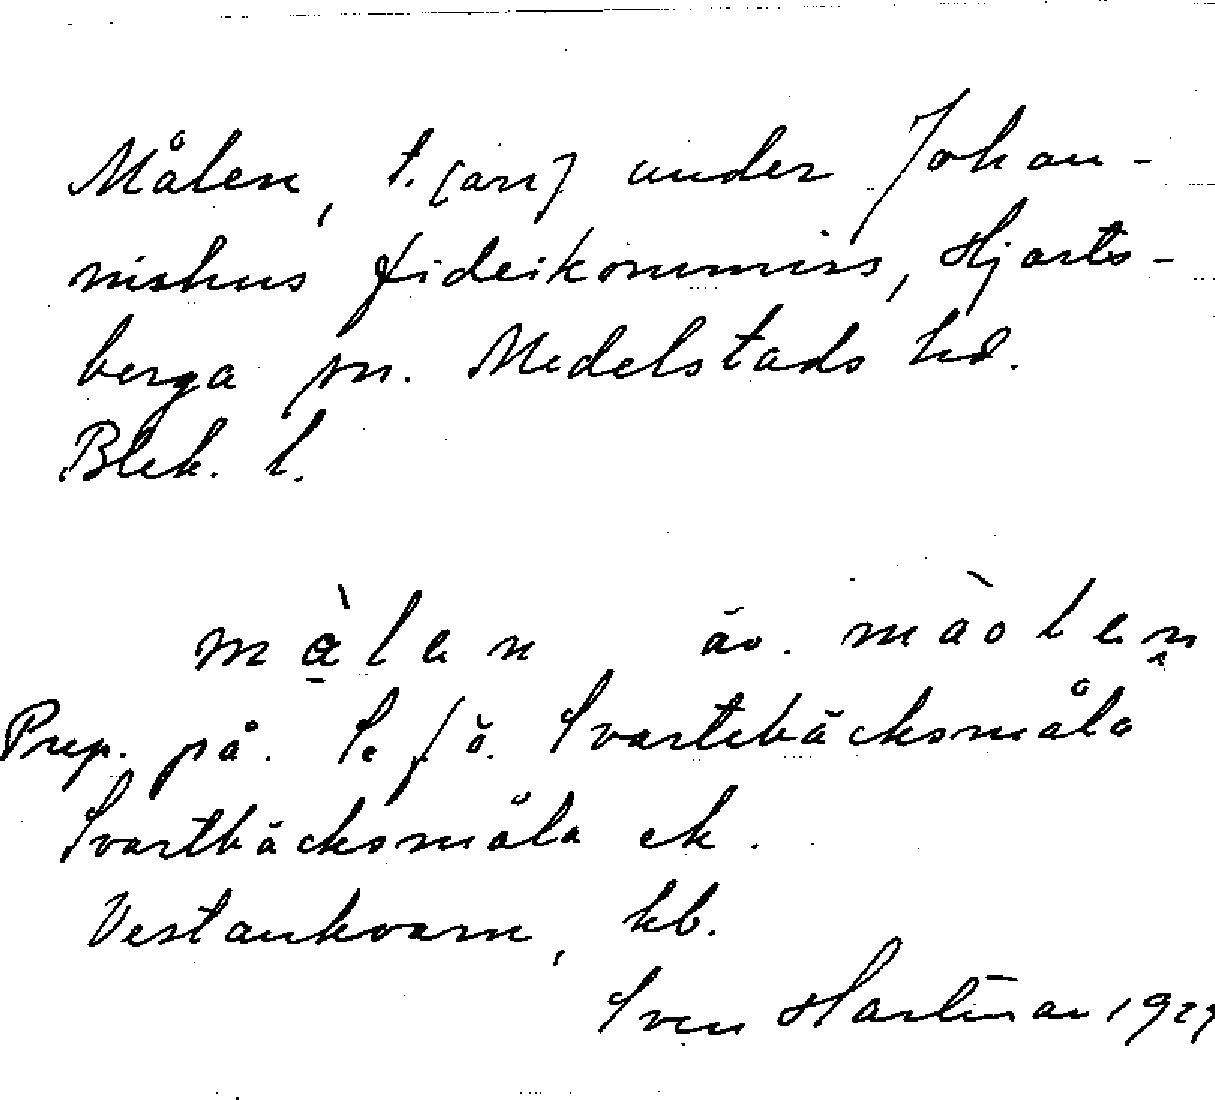 Målen, t. [arr] under Johan-
nishus fideikommiss, Hjorts-
berga sn. Medelstads hd.
Blek. l.
målen äv. màolen
Prep. på. S. fö. Svartebäcksmåla
Svartbäcksmåla ek.
Vestankvarn, kb.
Sven Hartman 1927